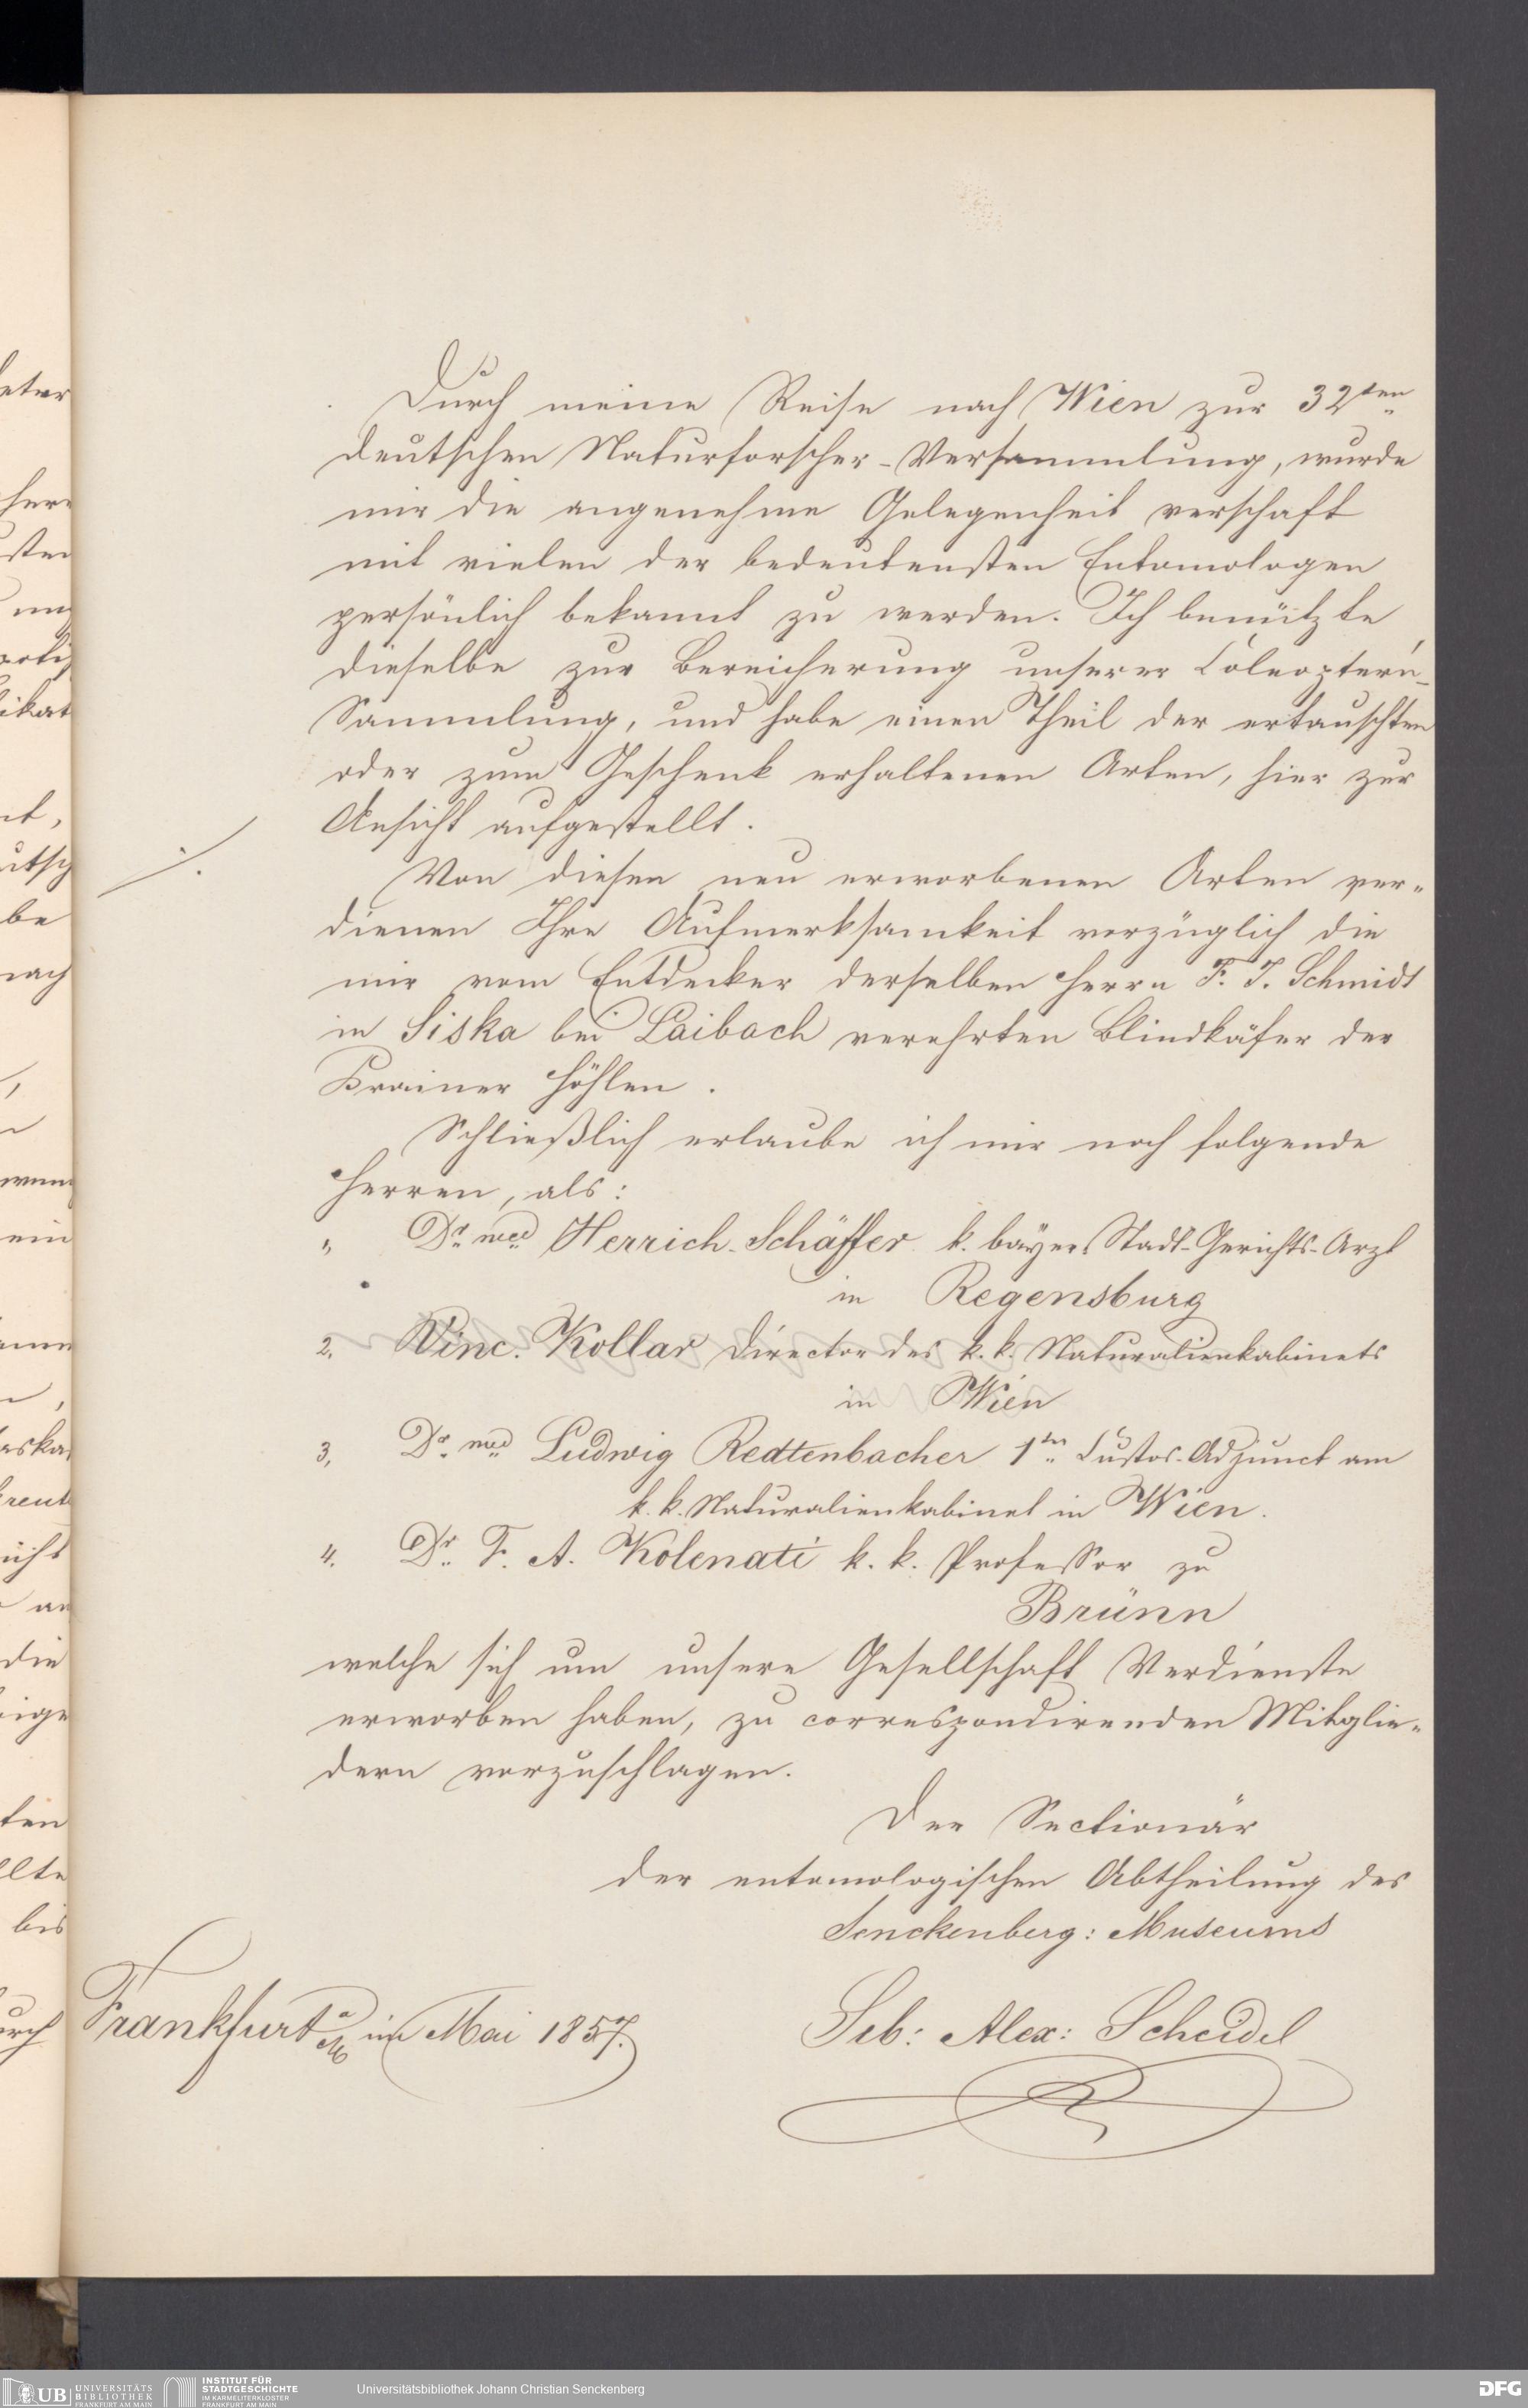 Durch meine Reise nach Wien zur 32ten
deutschen Naturforscher-Versammlung, wurde
mir die angenehme Gelegenheit verschaft
mit vielen der bedeutensten Entomologen
persönlich bekannt zu werden. Ich benützte
dieselbe zur Bereicherung unserer Coleoptern-
Sammlung, und habe einen Theil der ertauschten
oder zum Geschenk erhaltenen Arten, hier zur
Ansicht aufgestellt.
Von diesen neu erworbenen Arten ver-
dienen Ihre Aufmerksamkeit vorzüglich die
mir vom Entdecker derselben Herrn F. J. Schmidt
in Siska bei Laibach verehrten Blindkäfer der
Krainer Höhlen.
Schließlich erlaube ich mir noch folgende
Herren, als:
1, Dr. med Herrich-Schäffer k. bayer. Stadt-Gerichts-Arzt
in Regensburg
2. Vinc. Kollar Director des k. k. Naturalienkabinets
in Wien
3, Dr. med Ludwig Redtenbacher 1ter Custos-Adjunct am
k. k. Naturalienkabinet in Wien.
4. Dr. F. A. Kolenati k. k. Professor zu
Brünn
welche sich um unsere Gesellschaft Verdienste
erworben haben, zu correspondirenden Mitglie-
dern vorzuschlagen.
Der Sectionär
der entomologischen Abtheilung des
Senckenberg: Museums
Frankfurt a/M im Mai 1857.
Seb: Alex: Scheidel
UB UNIVERSITÄTS BIBLIOTHEK FRANKFURT AM MAIN
INSTITUT FÜR STADTGESCHICHTE IM KARMELITERKLOSTER FRANKFURT AM MAIN
Universitätsbibliothek Johann Christian Senckenberg
DFG